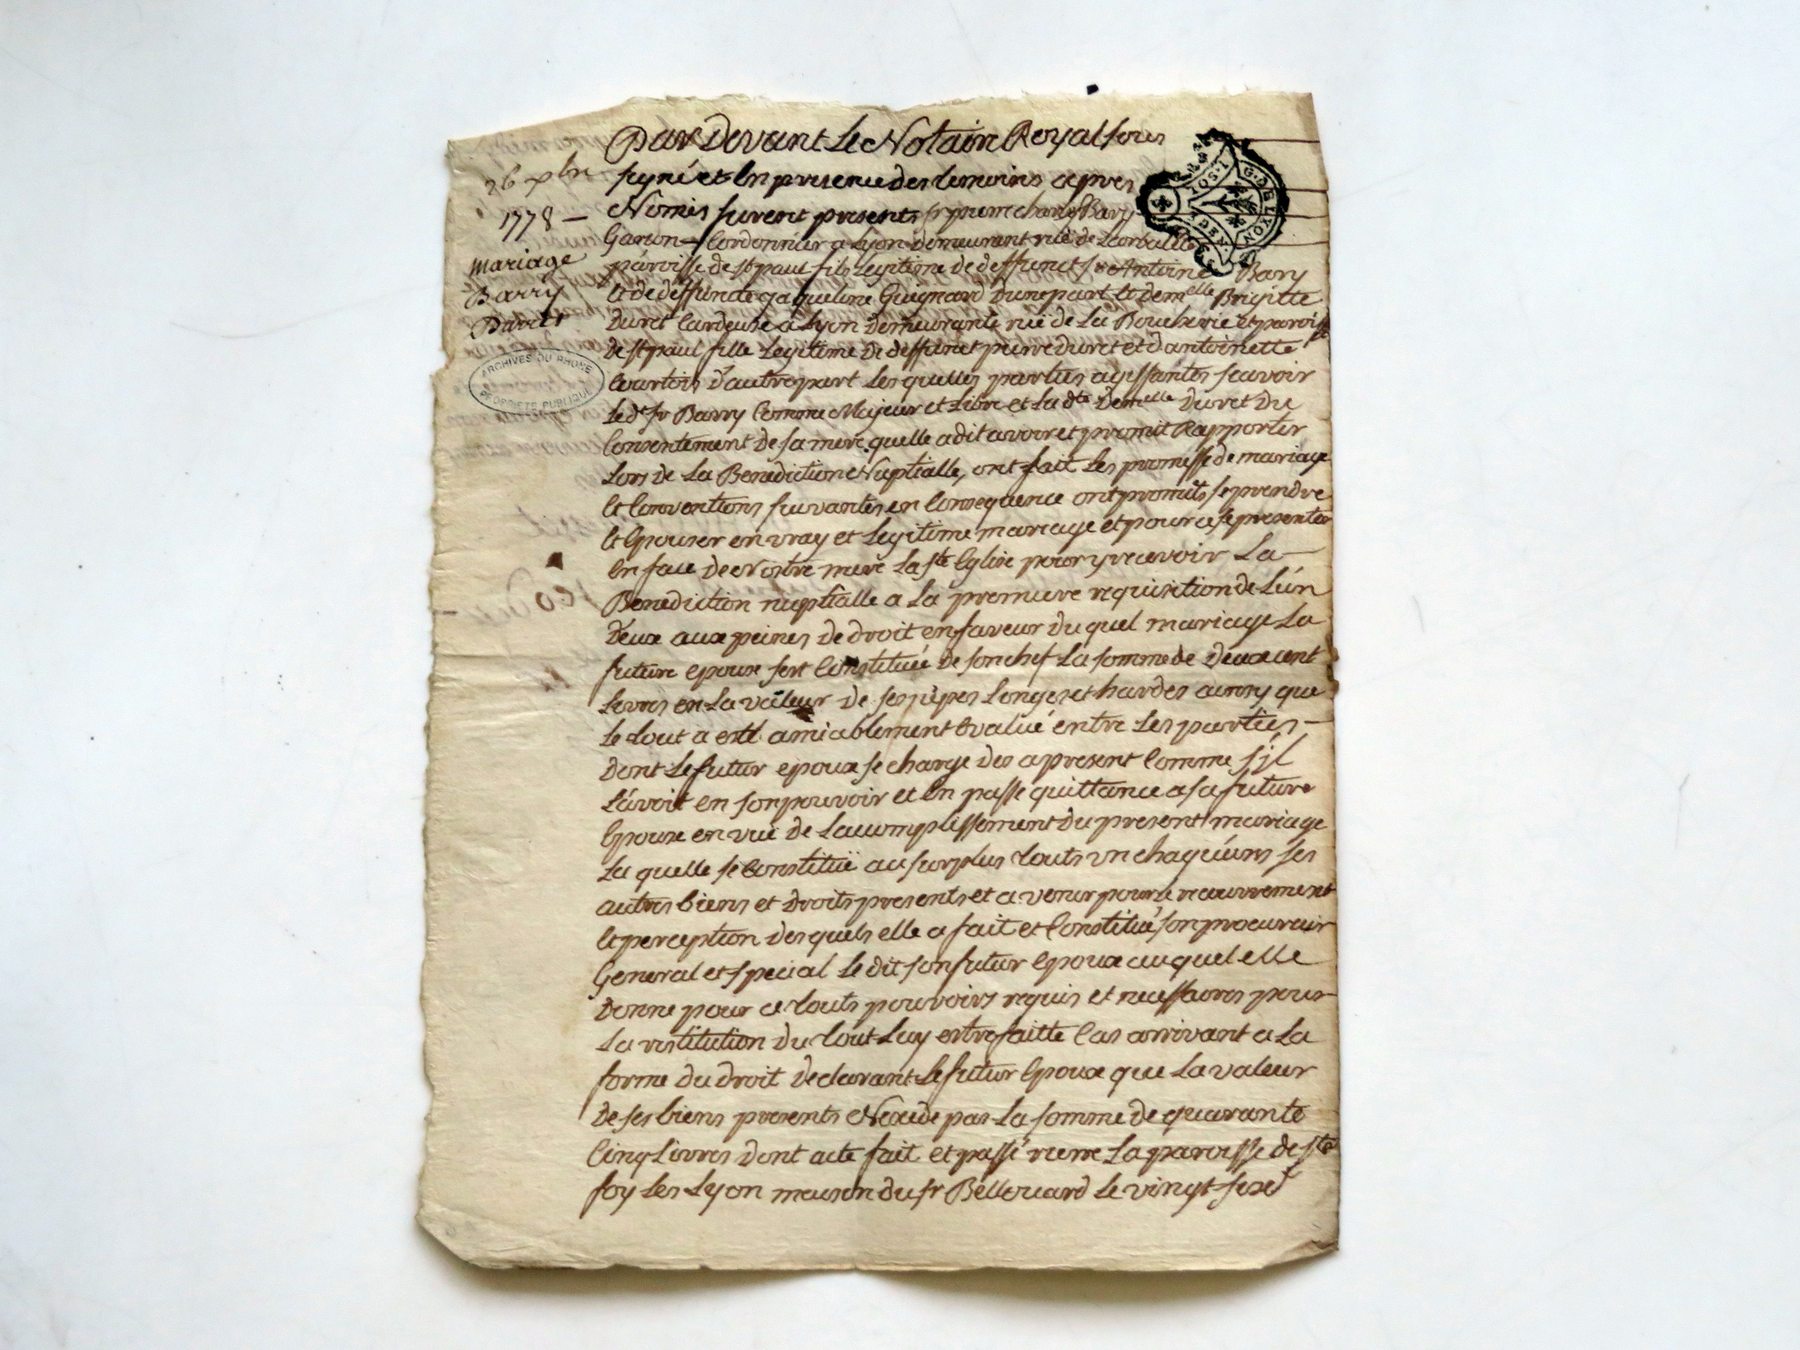 26 xbre
1778 —
mariage
Barry
Duret
ARCHIVES DU RHONE
PROPRIETE PUBLIQUE
G. DE LYON
Par Devant Le Notaire Royal sous
signé et En presence des temoins apres
Només furent presents sr pierre charles Bary
Garcon Cordonnier a Lyon demeurant rue de
paroisse de st paul fils Legitime de deffunct sr Antoine Bary
et de deffuncte jaqueline Guignard Dune part et Demelle Brigitte
Duret Cardeuse a Lyon Demeurante rue de La Boucherie et paroisse
de st paul fille Legitime de deffunct pierre duret et d'antoinette
Courtois d'autre part Les quelles parties agissantes scavoir
Le dt sr Barry Comme Majeur et Libre et La dte Demelle Duret Du
Consentement de sa mere quelle a dit avoir et promit Rapporter
Lors de La Benediction Nuptialle, ont fait Les promesse de mariage
et Conventions suivantes en Consequence ont promits se prendre
et Epouser en vray et Legitime mariage et pour ce se presenter
En face de Nostre mere La ste Eglise pour y recevoir La
Benediction nuptialle a La premiere requisition de L'un
Deux aux peines de droit en faveur du quel mariage La
future epouse sest Constituée de son chef La somme de deux cent
Livres en La valeur de ses jupes Linges et hardes ainsy que
Le tout a esté amiablement Evalué entre Les parties —
Dont Le futur epoux se charge des a present Comme s'jl
L'avoit en son pouvoir et En passe quittance a sa future
Epouse en vue de Laccomplissement du present mariage
La quelle se Constitue au surplus touts un chaqu'uns ses
autres biens et Droits presents et a venir pour le recouvrement
et perception des quels elle a fait et Constitué son procureur
General et special Le dit son futur epoux au quel elle
Donne pour ce touts pouvoirs requis et necessaires pour
La restitution du tout Luy estre faitte Cas arrivant a La
forme du droit declarant Le futur Epoux que La valeur
de ses biens presents N'excede pas La somme de quarante
Cinq Livres dont acte fait et passé riere La paroisse de ste
foy Les Lyon maison du sr Bellouard Le vingt six